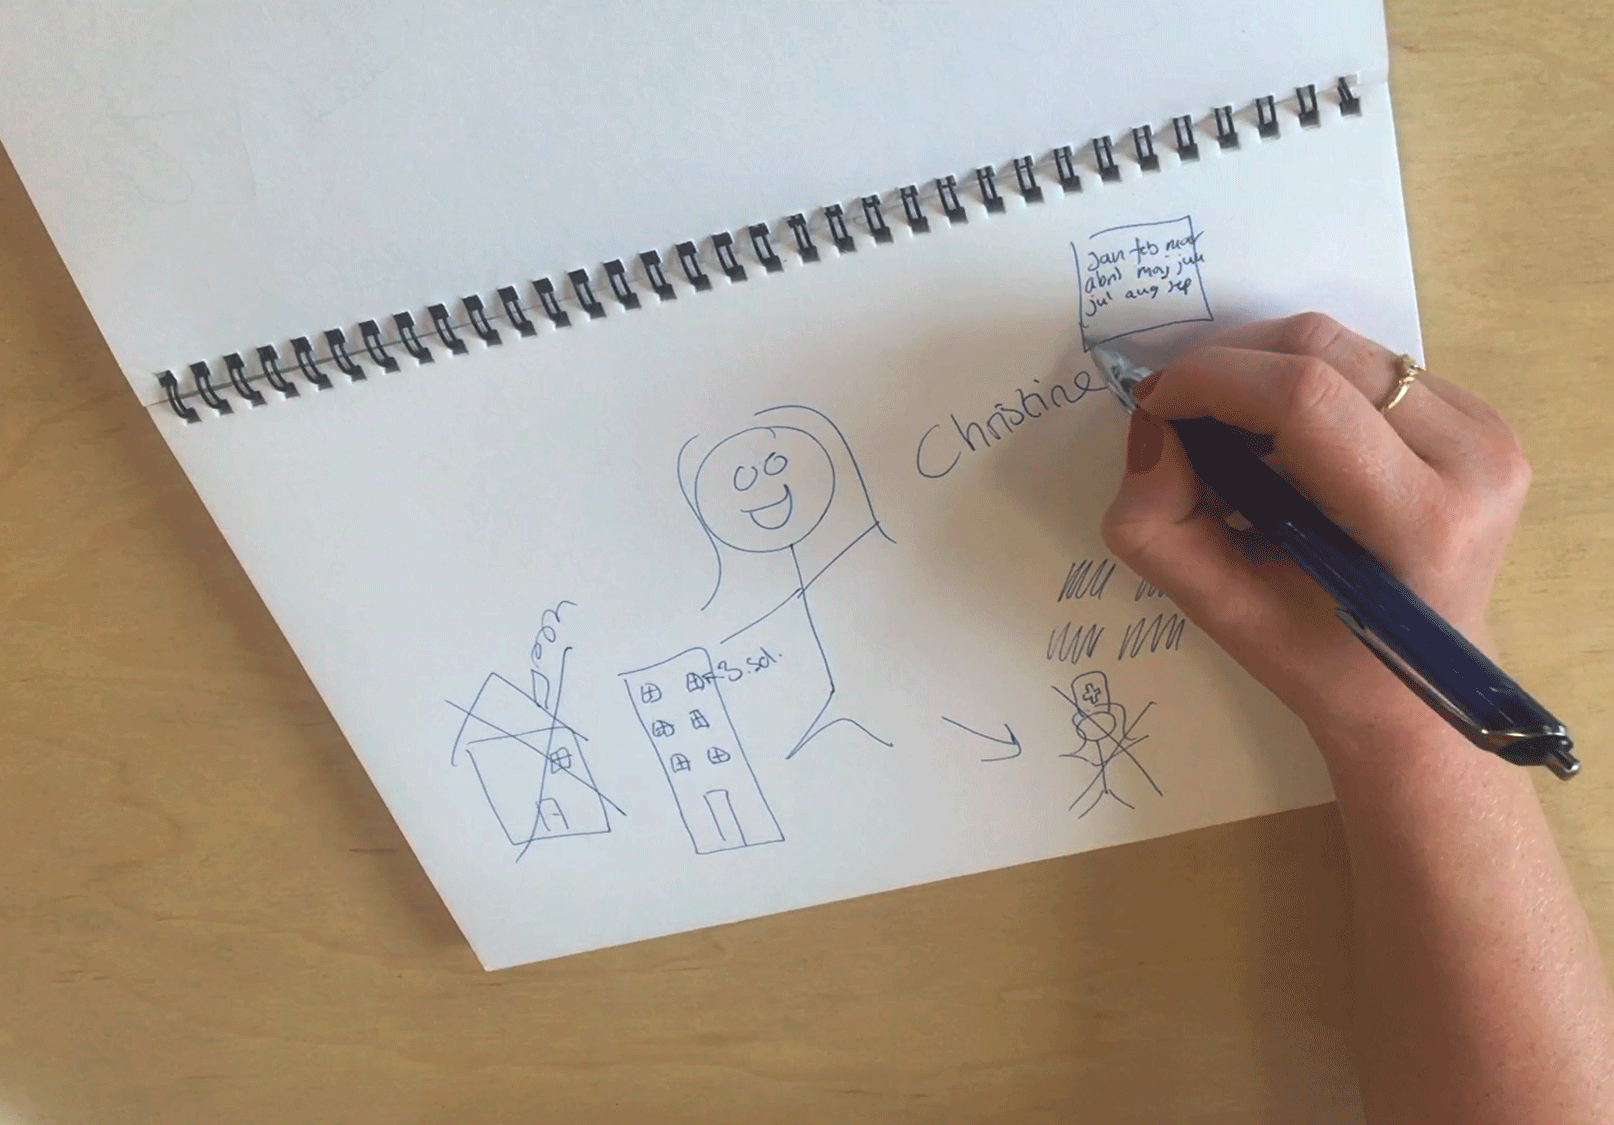 Jan feb mar
abril maj jun
jul aug sep
Christine
3. sal.